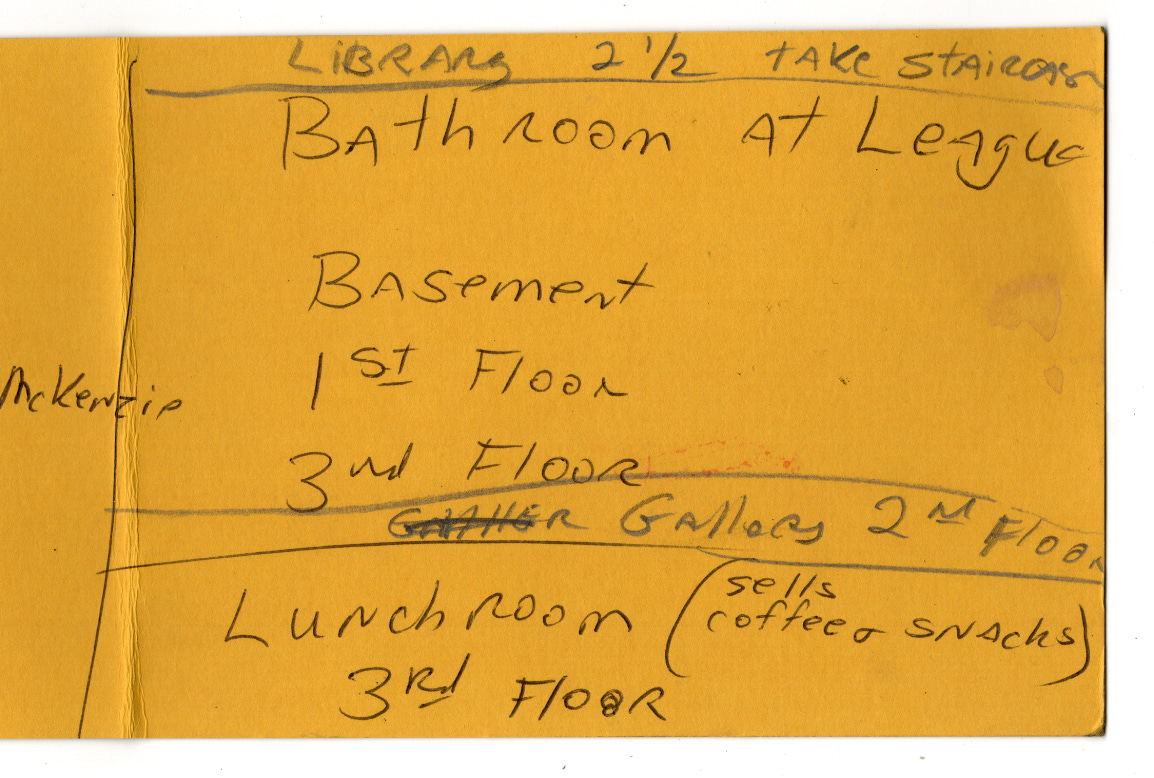 LiBRARy 2 1/2 TAKe STAiRCase
BAthRoom At LeAgue
BASement
1 ST Floor
McKenzie
3 nd FlooR
GAllery 2 nd Floor
LuNchRoom (sells
coffee & SNAcks)
3 Rd FlooR